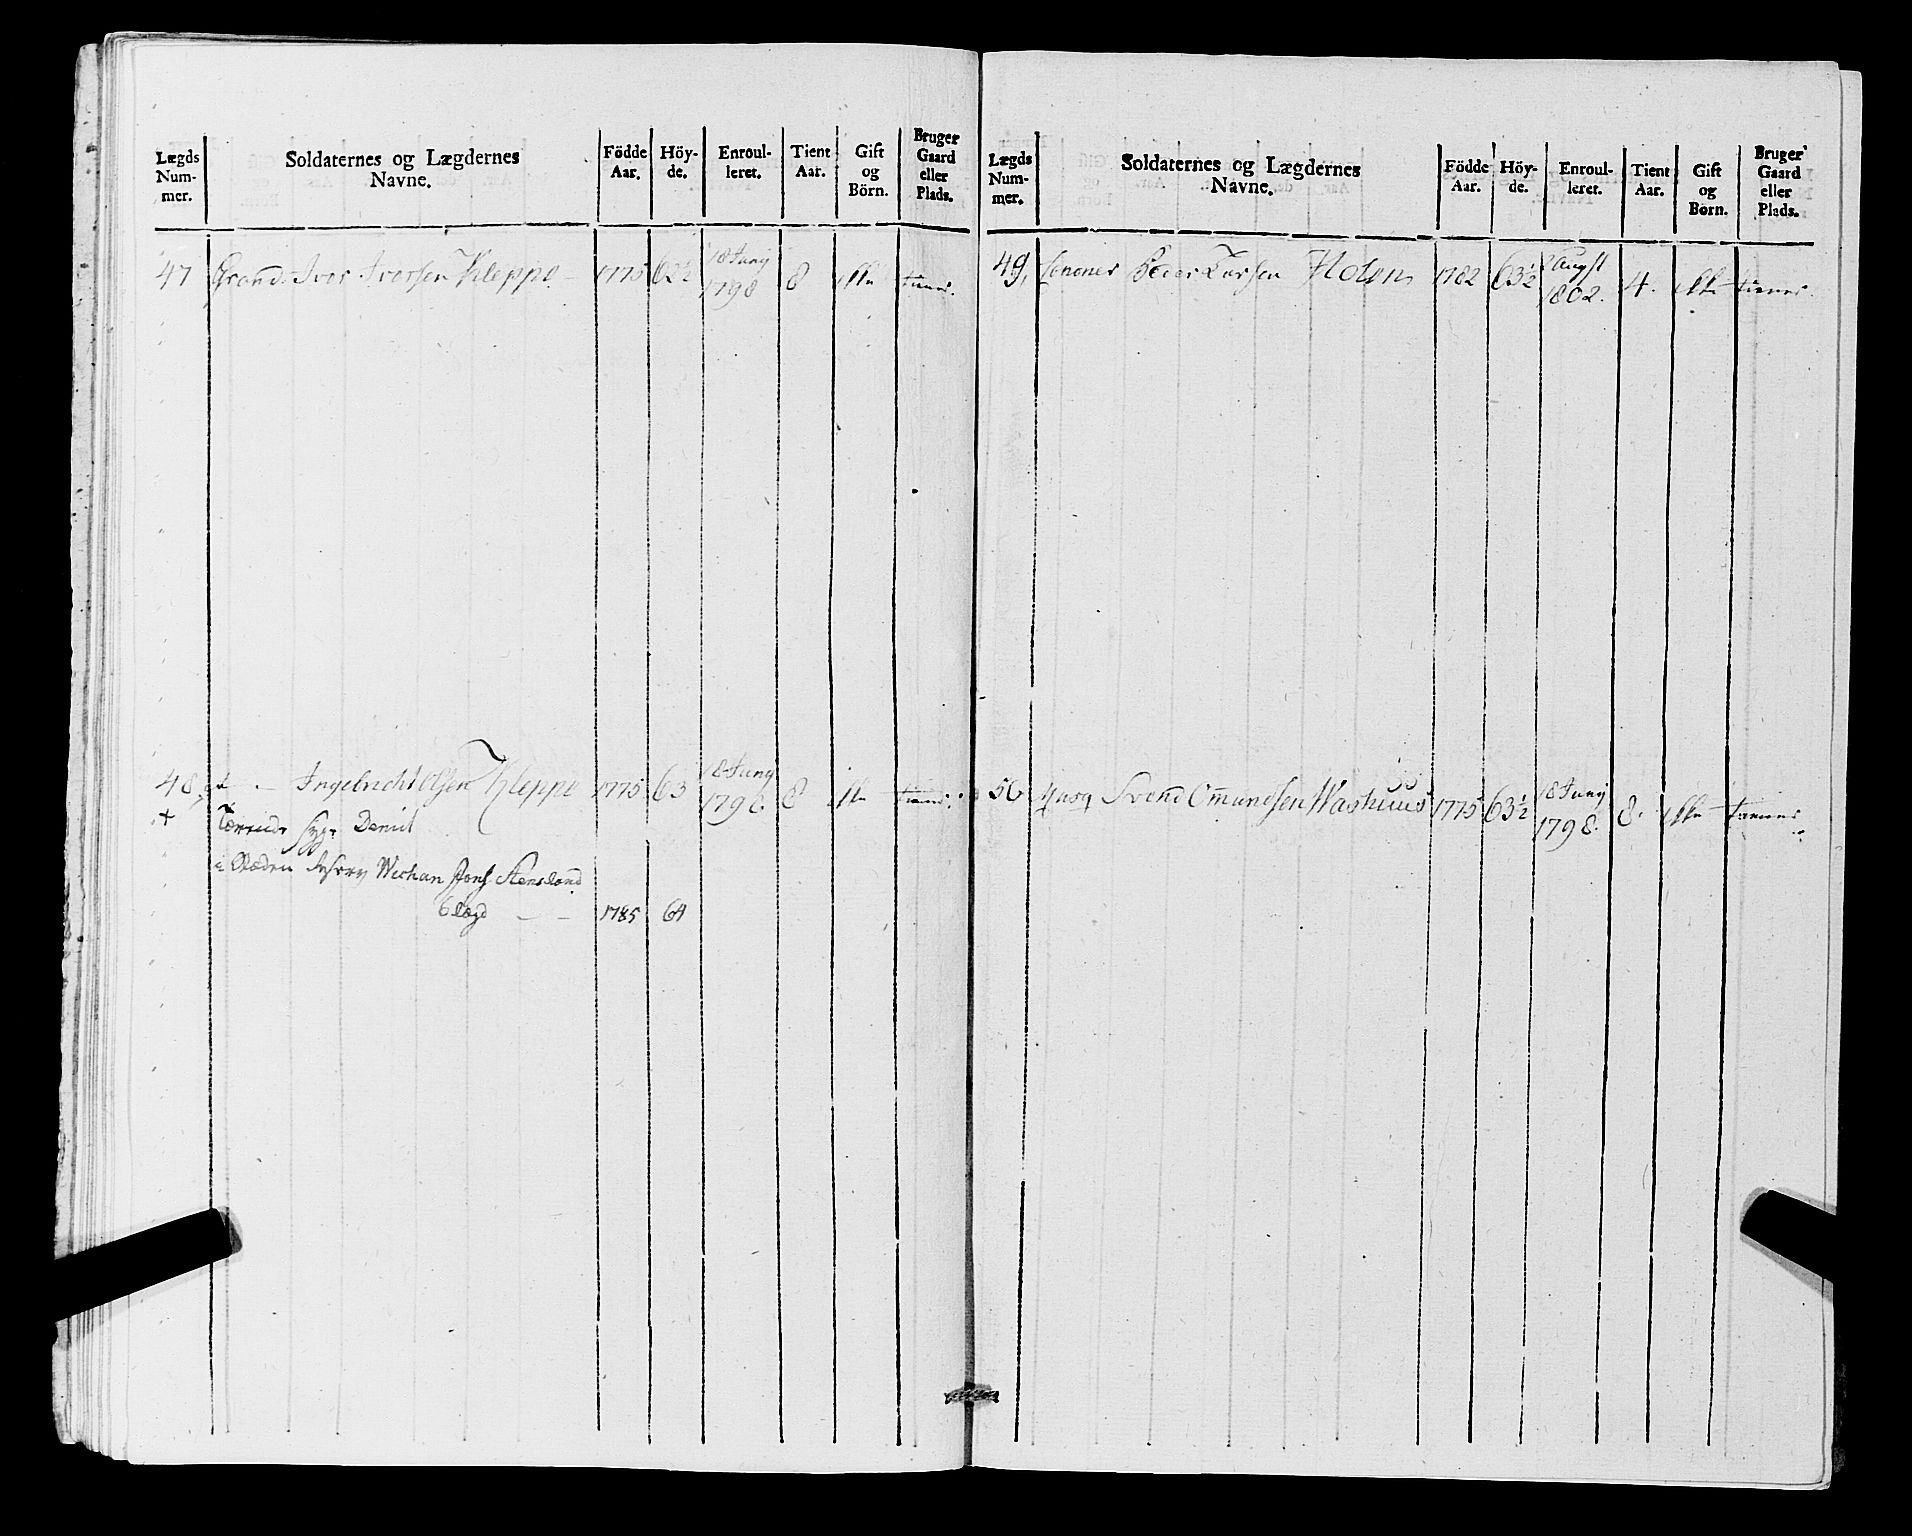 Lægds Num- mer.
Soldaternes og Lægdernes Navne.
Födde Aar.
Höy- de.
Enroul- leret.
Tient Aar.
Gift og Börn.
Bruger Gaard eller Plads.
47 Grand. Iver Iversen Kleppe 1775 62½ 18 Juny 1798 8 ikke tiener.
48 Ingebricht Olsen Kleppe 1775 63 18 Juny 1798. 8 ikke tiener.
+ Tærende Syge Demit
i Stæden Reserv Michan Jons Stensland
6 Lægd 1785 64
Lægds Num- mer.
Soldaternes og Lægdernes Navne.
Födde Aar.
Höy- de.
Enroul- leret.
Tient Aar.
Gift og Börn.
Bruger Gaard eller Plads.
49, Peder Larsen Holen 1782 63½ August 1802. 4. ikke tiener.
50 Svend Omundsen Washuus 1775 63½ 18 Juny 1798. 8. ikke tiener